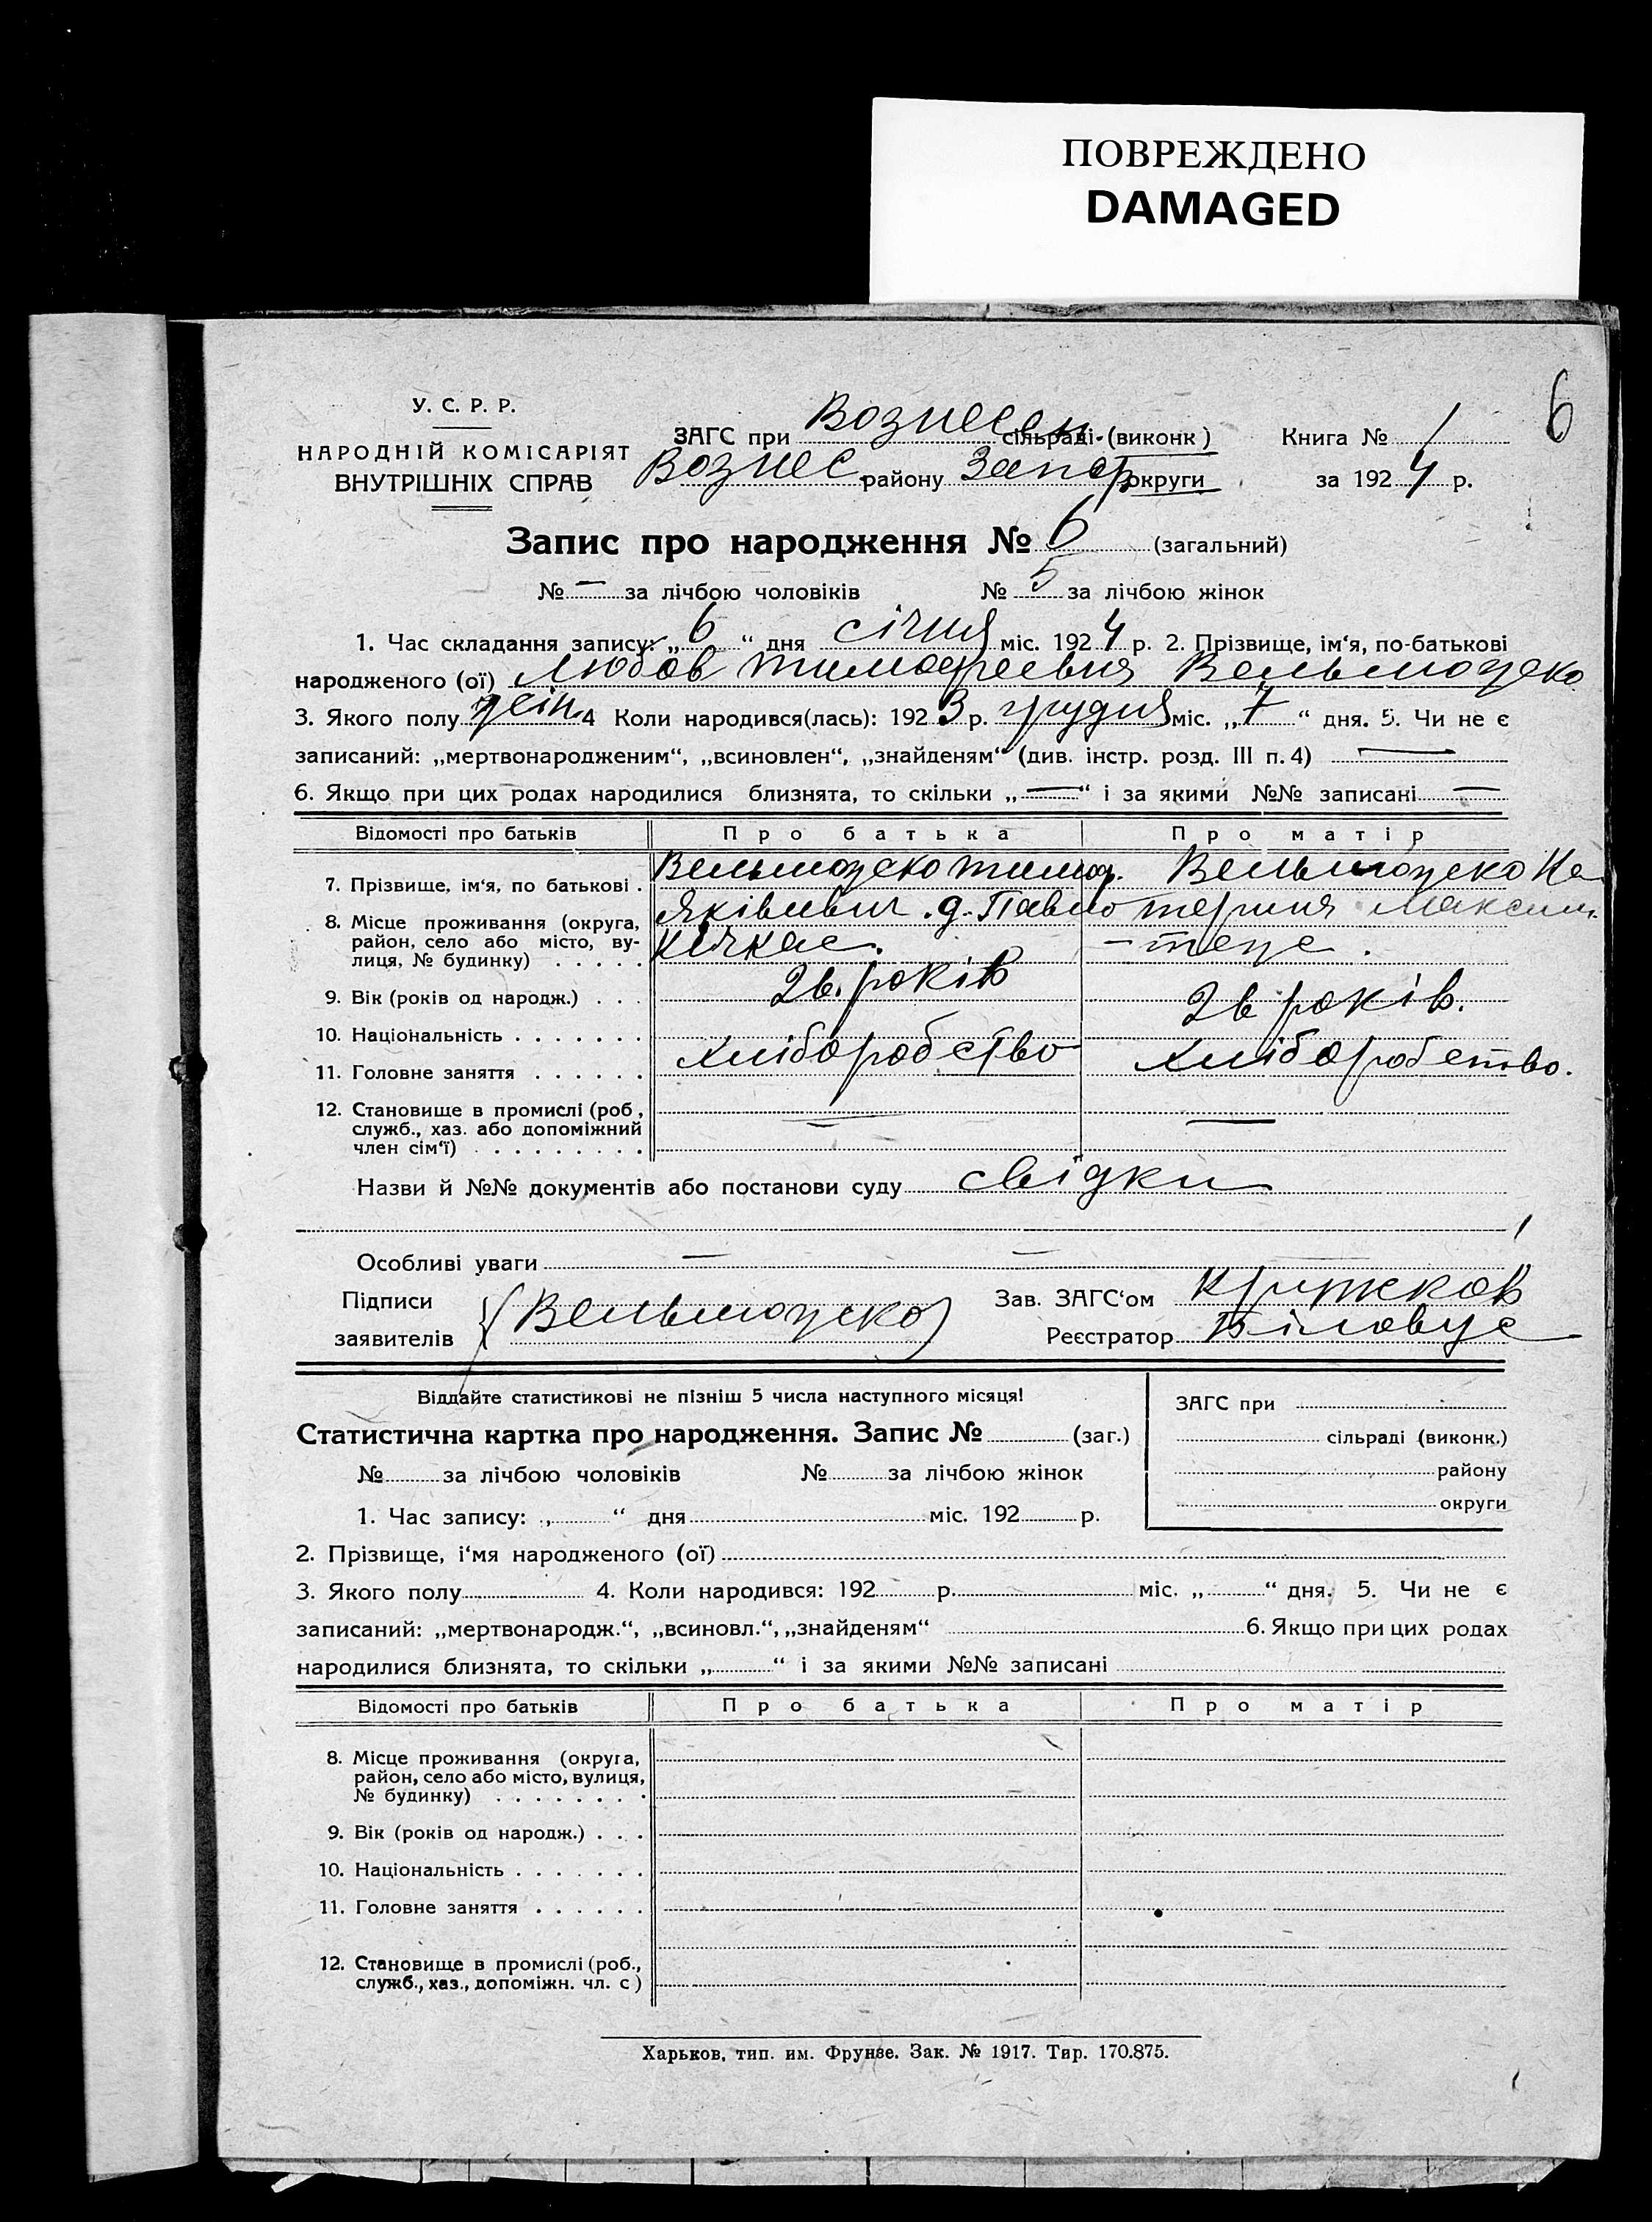 ПОВРЕЖДЕНО
DAMAGED
6
У. С. Р. Р.
НАРОДНІЙ КОМІСАРІЯТ
ВНУТРІШНІХ СПРАВ
ЗАГС при Вознесен. сільраді (виконк) Книга № 1
Вознес району Запор округи за 1924 р.
Запис про народження № 6 (загальний)
№ — за лічбою чоловіків № 5 за лічбою жінок
1. Час складання запису: „6“ дня січня міс. 1924 р. 2. Прізвище, ім‘я, по-батькові
народженого (ої) Любов Тимофеевня Вельможко
3. Якого полу жін. 4 Коли народився(лась): 1923 р. грудня міс. „7“ дня. 5. Чи не є
записаний: „мертвонародженим“, „всиновлен“, „знайденям“ (див. інстр. розд. III п. 4) —
6. Якщо при цих родах народилися близнята, то скільки „—“ і за якими №№ записані —
Відомості про батьків Про батька Про матір
7. Прізвище, ім‘я, по батькові . Вельможко Тимоф. Вельможко Ка
8. Місце проживання (округа, район, село або місто, вулиця, № будинку) . . . . . Яківович . д. Павло терина Максим.
Кічкас. — теж .
9. Вік (років од народж.) . . . 26. років 26 років.
10. Національність . . . . . . .
11. Головне заняття . . . . . . хліборобство хліборобство.
12. Становище в промислі (роб, служб., хаз. або допоміжний член сім‘ї) . . . . . . . . . — —
Назви й №№ документів або постанови суду свідки
Особливі уваги — —
Підписи заявителів { Вельможко Зав. ЗАГС‘ом
Реєстратор Біловус
Віддайте статистикові не пізніш 5 числа наступного місяця!
Статистична картка про народження. Запис № (заг.)
№ за лічбою чоловіків № за лічбою жінок
1. Час запису: „ “ дня міс. 192 р.
ЗАГС при
сільраді (виконк.)
району
округи
2. Прізвище, і‘мя народженого (ої)
3. Якого полу 4. Коли народився: 192 р. міс. „ “ дня. 5. Чи не є
записаний: „мертвонародж.“, „всиновл.“, „знайденям“ 6. Якщо при цих родах
народилися близнята, то скільки „ “ і за якими №№ записані
Відомості про батьків Про батька Про матір
8. Місце проживання (округа,
район, село або місто, вулиця,
№ будинку) . . . . . . . .
9. Вік (років од народж.) . . .
10. Національність . . . . . . .
11. Головне заняття . . . . . .
12. Становище в промислі (роб.,
служб., хаз., допоміжн. чл. с)
Харьков, тип. им. Фрунзе. Зак. № 1917. Тир. 170.875.